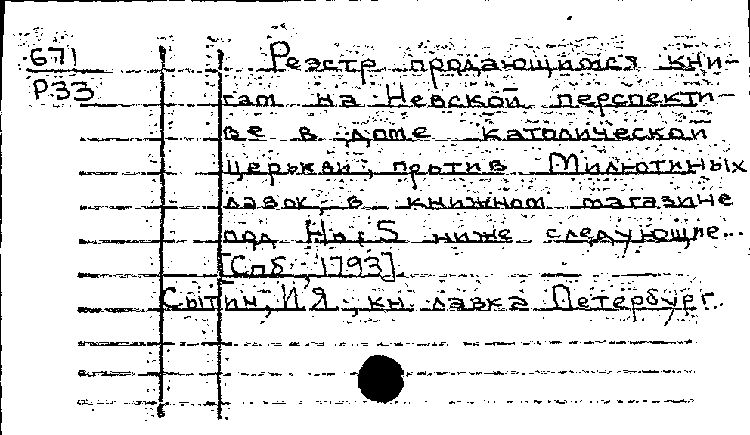 671
Р33
Реэстр продающимся кни-
гам на Невской перспекти-
ве в доме католической
церькви, против Милютиных
лавок, в книжном магазине
под No: 5 ниже следующие...
[Спб, 1793]
Сытин, И.Я., кн. лавка Петербург.